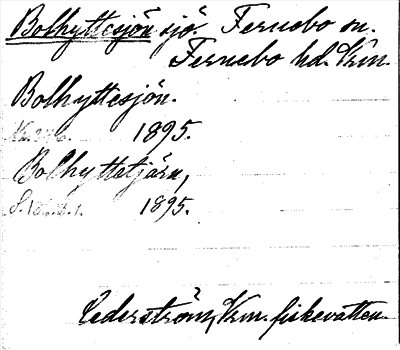 Bolhyttesjön sjö Fernebo sn.
Fernebo hd. Vrm.
Bolhyttesjön.
1895.
Bolhyttetjärn,
1895.
Cederström, Vrm. fiskevatten.